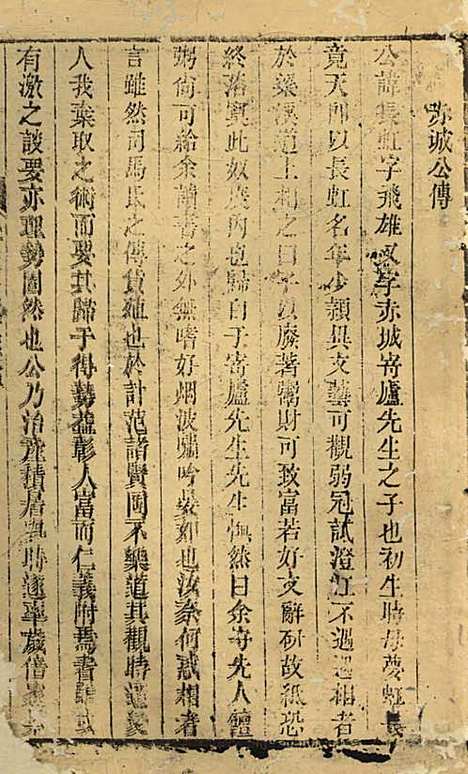 赤城公傳
公諱長虹字飛雄又字赤城寄廬先生之子也初生時母夢虹
竟天即以長虹名年少穎異文藝可觀弱冠試澄江不遇遇相者
於梁溪道上相之曰子以廢著鬻財可致富若好文辭研故紙恐
終落寞此奴廡內也歸白于寄廬先生先生憮然曰余守先人饘
粥尚可給余讀書之外無嗜好烟波嘯吟晏如也汝奈何惑相者
言雖然司馬氏之傳貨殖也於計范諸賢固不樂道其觀時
人我棄取之術而要其歸于得勢益彰人富而仁義附焉書
有激之談要亦理勢固然也公乃治產積居與時逐單歲借